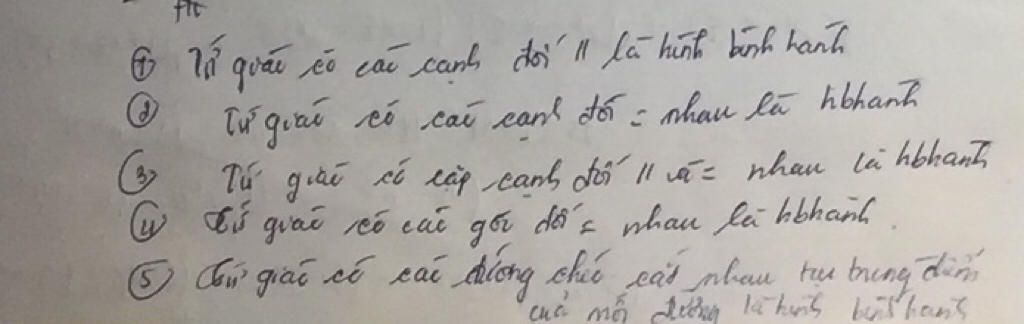 ① Tứ giác có các cạnh đối // là hình bình hành
② Tứ giác có các cạnh đối = nhau là hbhành
③ Tứ giác có cặp cạnh đối // và = nhau là hbhành
④ Tứ giác có các góc đối = nhau là hbhành
⑤ Tứ giác có các đường chéo cắt nhau tại trung điểm
của mỗi đường là hình bình hành